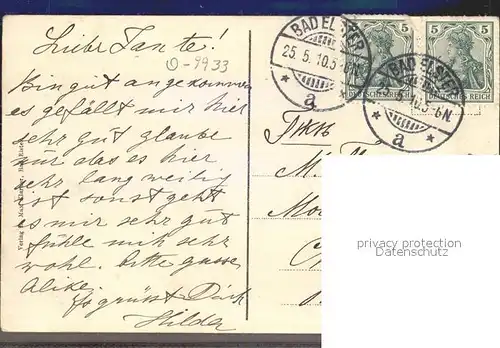 Liebe Tante!
0-9933
Bin gut angekommen
es gefällt mir hier
sehr gut glaube
nur das es hier
sehr lang weilig
ist sonst geht
es mir sehr gut
fühle mich sehr
wohl. bitte
Es grüsst Dich
Hilde
Verlag
BAD ELSTER
25.5.10.5-6N
a
BAD ELSTER
5.10.5-6N
a
5
DEUTSCHES REICH
5
DEUTSCHES REICH
М.
privacy protection
Datenschutz